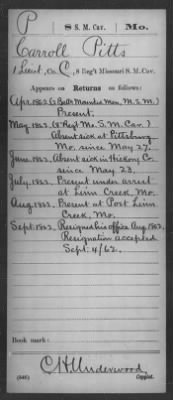 P 8 S. M. Cav. Mo.
Carroll Pitts
1 Lieut, Co. C, 8 Reg't Missouri S. M. Cav.
Appears on Returns as follows:
Apr. 1862. (6 Batt'n Mounted Men, M.S.M.)
Present.
May 1862. (8 Reg't Mo. S. M. Cav.)
Absent sick in Pittsburg
Mo. since May 27.
June 1862. Absent sick in Hickory Co.
since May 23.
July 1862. Present under arrest
at Linn Creek Mo.
Aug. 1862. Present at Post Linn
Creek, Mo.
Sept. 1862. Resigned his office Aug. 1862.
Resignation accepted
Sept. 4/62.
Book mark:
C. H. Underwood
(546) Copyist.